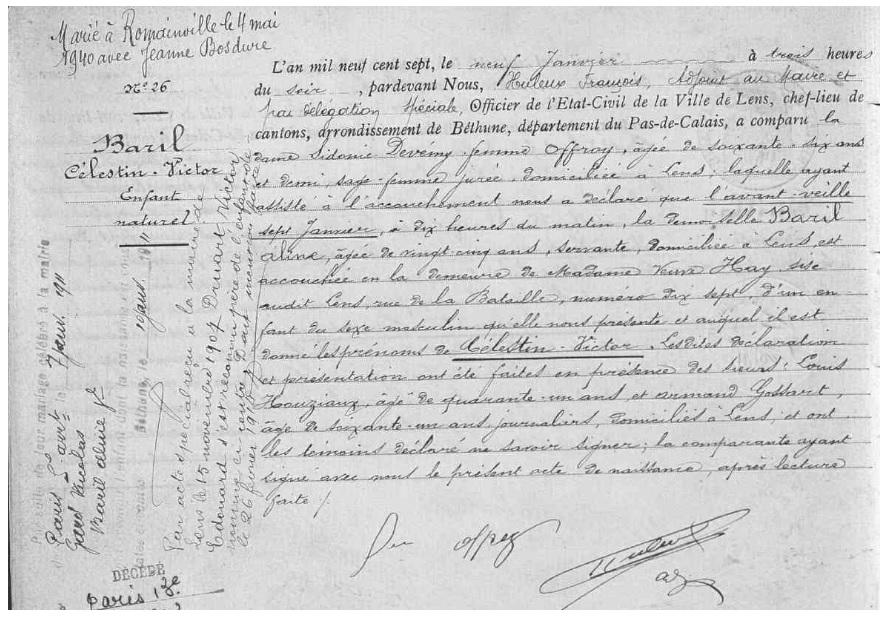 Marié à Romainville le 4 mai
1940 avec Jeanne Bosdure
N° 26
Baril
Célestin-Victor
Enfant
naturel
L'an mil neuf cent sept, le neuf Janvier à trois heures
du soir, pardevant Nous, Huleux François, Adjoint au Maire et
par délégation spéciale, Officier de l'Etat-Civil de la Ville de Lens, chef-lieu de
cantons, arrondissement de Béthune, département du Pas-de-Calais, a comparu la
dame Sidonie Devémy femme Offroy, âgée de soixante-six ans
et demi, sage-femme jurée, domiciliée à Lens; laquelle ayant
assisté à l'accouchement nous a déclaré que l'avant-veille
sept Janvier, à dix heures du matin, la demoiselle Baril
Aline, âgée de vingt cinq ans, servante, domiciliée à Lens, est
accouchée en la demeure de Madame Veuve Hay, sise
audit Lens, rue de la Bataille, numéro dix sept, d'un en
fant du sexe masculin qu'elle nous présente et auquel il est
donné les prénoms de Célestin-Victor. Lesdites déclaration
et présentation ont été faites en présence des sieurs: Louis
Houziaux, âgé de quarante-un ans et Armand Gossart,
âgé de soixante-un ans, journaliers, domiciliés à Lens; et ont
les témoins déclaré ne savoir signer; la comparante ayant
signé avec nous le présent acte de naissance, après lecture
faite /.
Par acte spécial reçu à la mairie de
Lens le 15 novembre 1907 Druart Victor
Edouard s'est reconnu père de l'enfant
le 26 février
célébré à la mairie
Paris arrt le 7 janv. 1911
Nicolas
Baril Aline
Béthune, le 10 janv. 1911
DÉCÉDÉ
Paris 13e